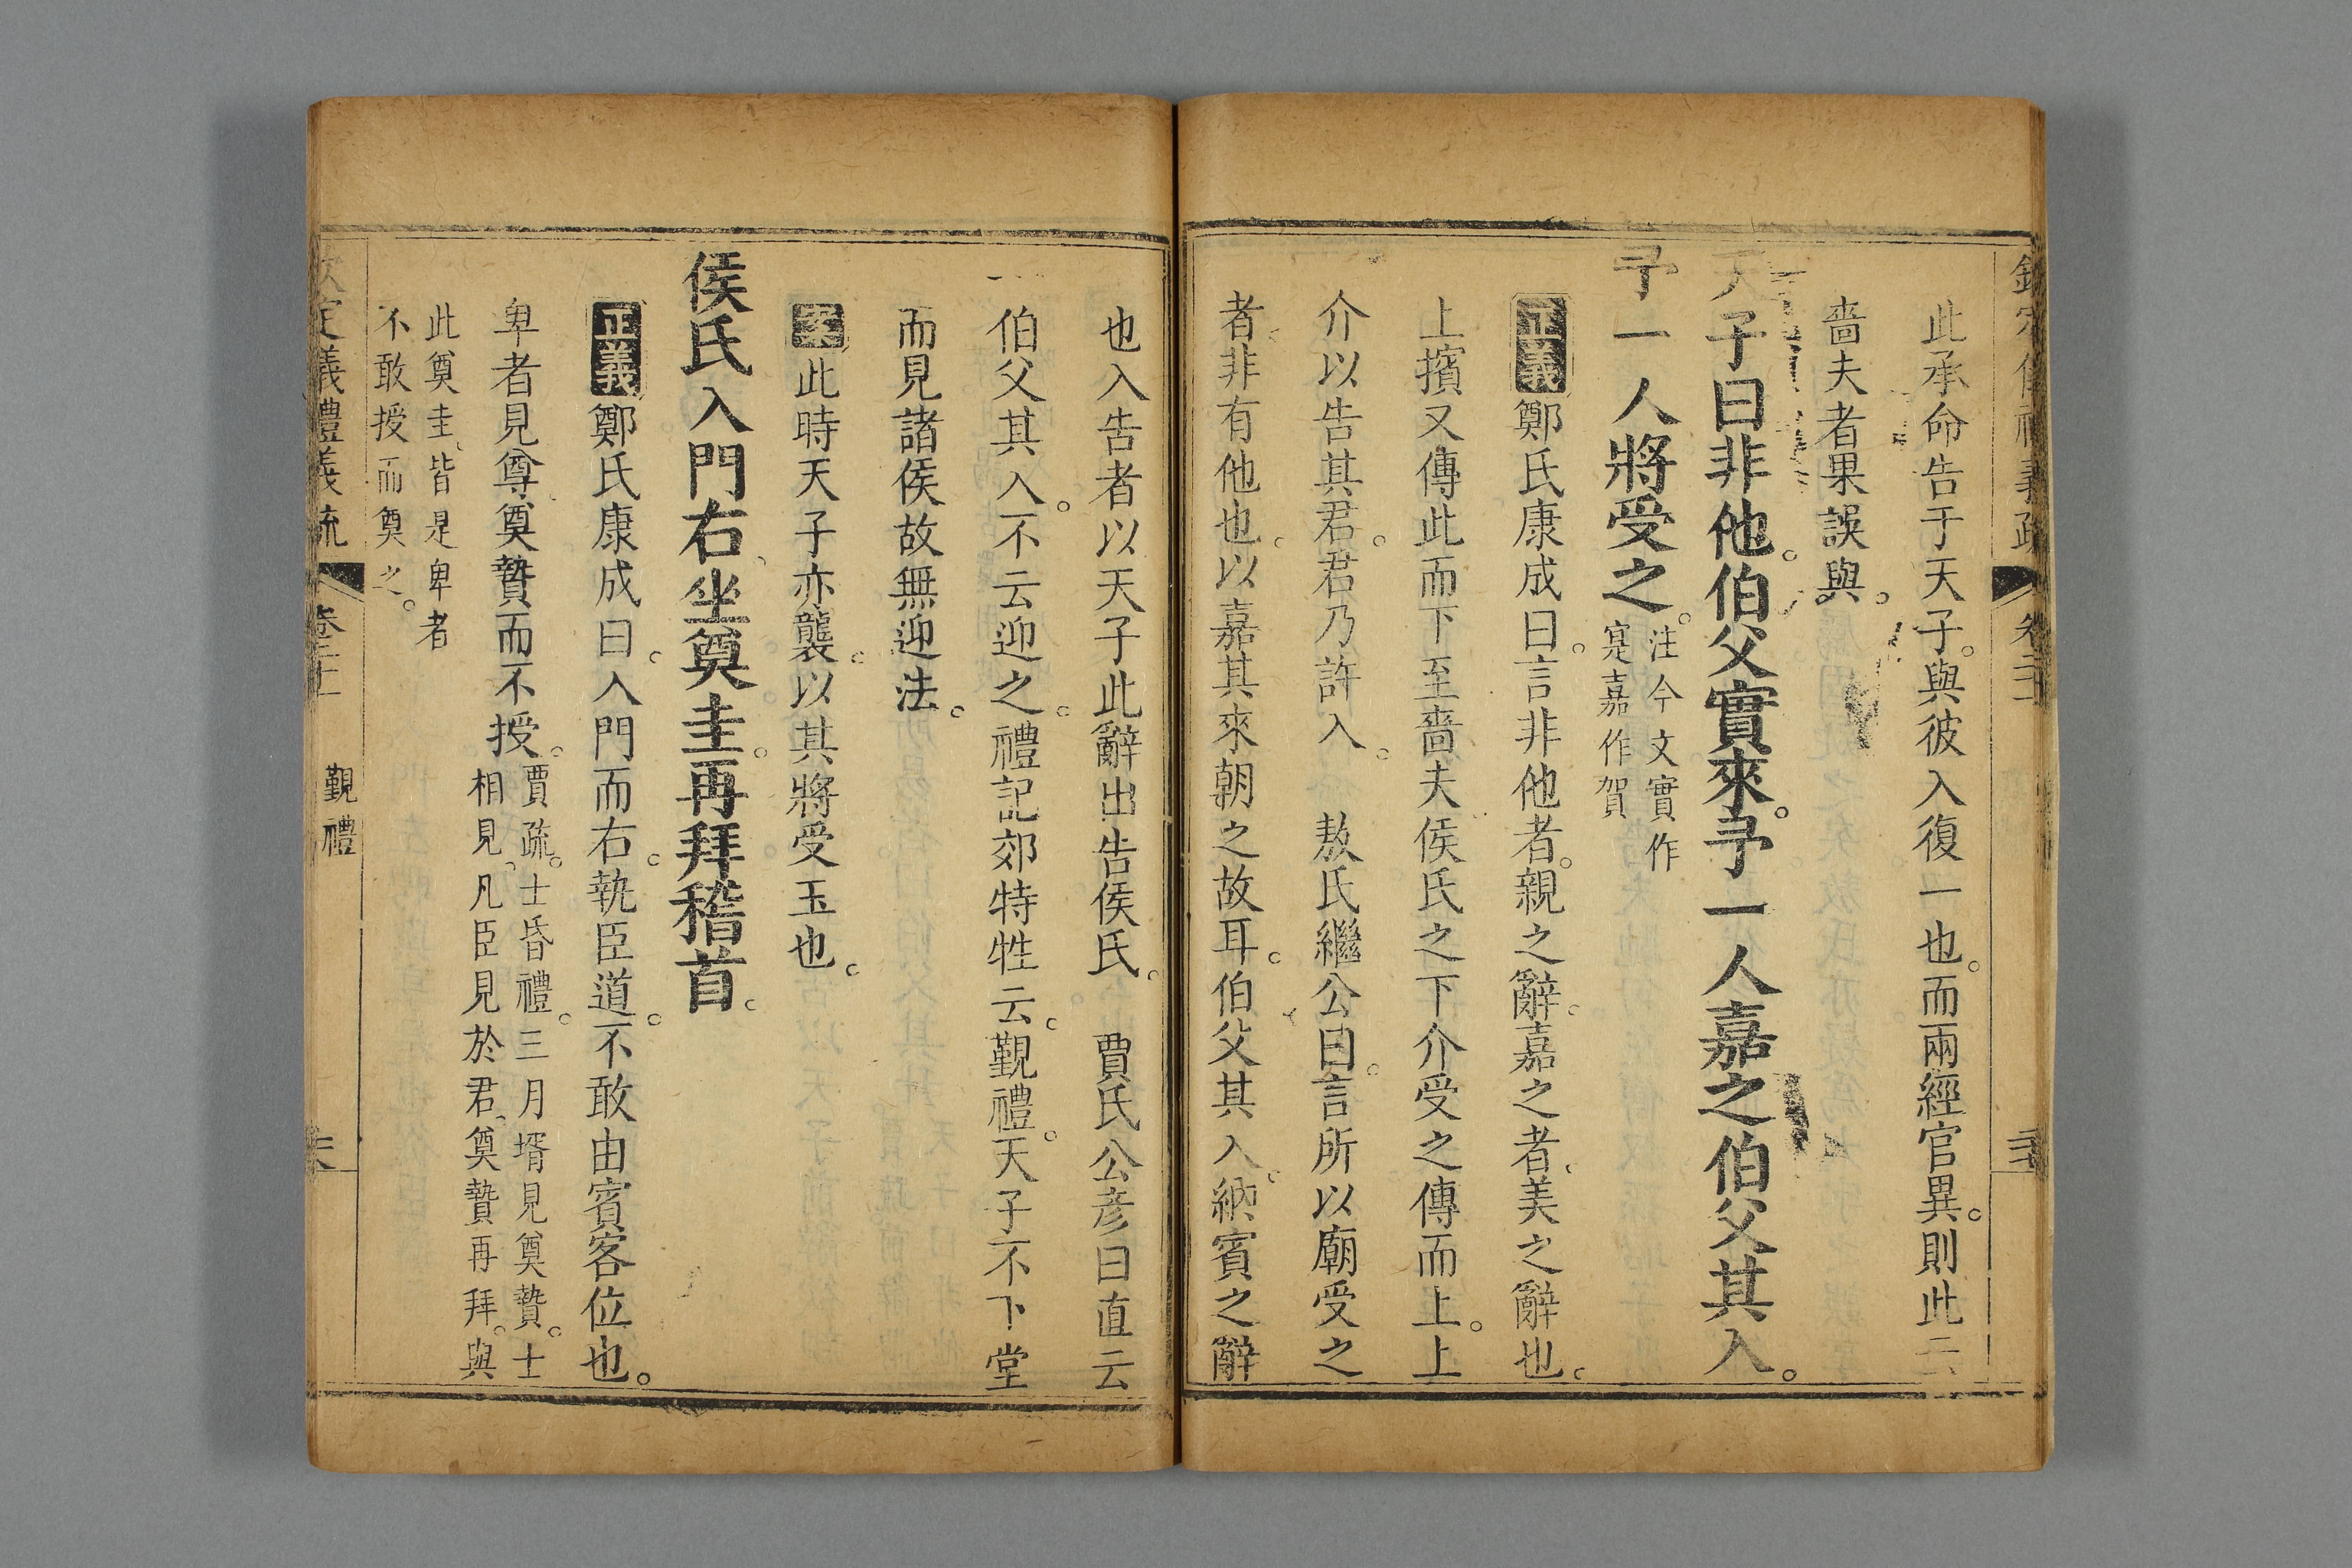 此承命告于天子。與彼入復一也。而兩經官異。則此云
嗇夫者果誤與。
天子曰非他。伯父實來。予一人嘉之伯父其入。
予一人將受之。注今文實作
寔嘉作賀
正義鄭氏康成曰。言非他者。親之辭。嘉之者、美之辭也。
上擯又傳此而下至嗇夫侯氏之下介受之傳而上。上
介以告其君。君乃許入。 敖氏繼公曰。言所以廟受之
者、非有他也。以嘉其來朝之故耳。伯父其入。納賓之辭
也入告者以天子此辭出告侯氏。 賈氏公彥曰直云
伯父其入。不云迎之。禮記郊特牲云。覲禮。天子不下堂
而見諸侯故無迎法。
案此時天子亦襲。以其將受玉也。
侯氏入門右、坐奠圭。再拜稽首。
正義鄭氏康成曰。入門而右。執臣道。不敢由賓客位也。
卑者見尊、奠贄而不授。賈疏。士昏禮。三月壻見奠贄。士
相見、凡臣見於君、奠贄再拜。與
此奠圭、皆是卑者
不敢授而奠之。
欽定儀禮義疏 卷二十 覲禮